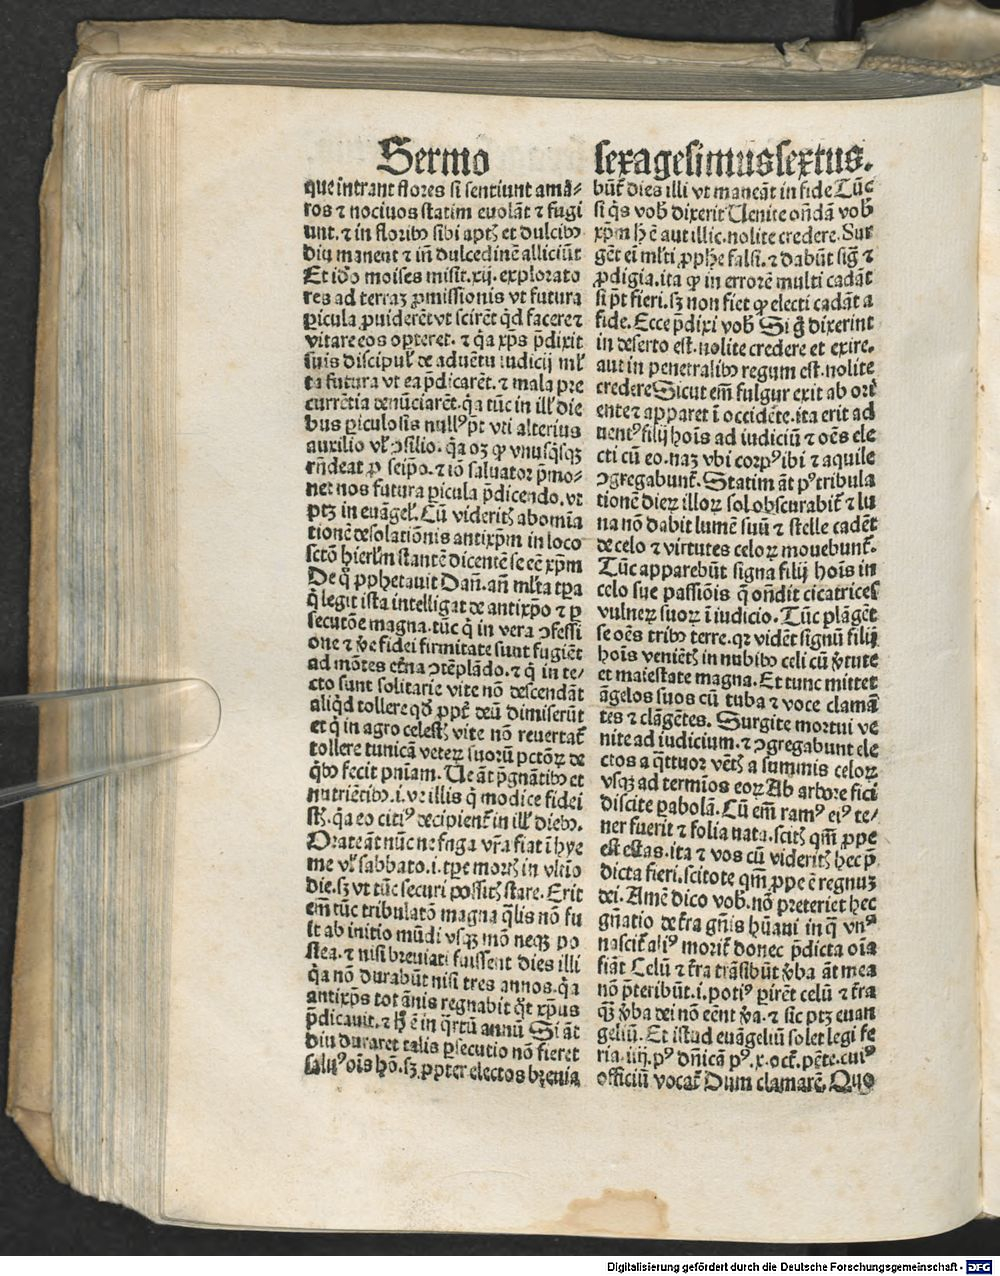 Sermo sexagesimussextus.
que intrant flores si sentiunt ama⸗
ros ⁊ nociuos statim euolāt ⁊ fugi
unt. ⁊ in floribꝰ sibi aptꝭ et dulcibꝰ
diu manent ⁊ in dulcedinē alliciūt
Et iđo moises misit .xij. explorato
res ad terraꝫ ꝓmissionis vt futura
ꝑicula ꝓuiderēt vt scirēt qđ facere ⁊
vitare eos opteret. ⁊ q̄a xp̄s p̄dixit
suis discipul̓ de aduētu iudicij ml̓
ta futura vt ea p̄dicarēt. ⁊ mala pre
currētia denūciarēt. q̄a tūc in ill̓ die
bus ꝑiculosis null̓ꝰ pt̄ vti alterius
auxilio vl̓ ↄsilio. q̄a oꝫ ꝙ vnusq̄sqꝫ
rn̄deat ꝓ seip̄o. ⁊ iō saluator p̄mo⸗
net nos futura ꝑicula p̄dicendo. vt
ptꝫ in euāgel̓. Cū videritꝭ abomīa
tionē desolationis antixp̄m in loco
sctō hierl̓m stantē dicentē se eē xp̄m
De q̊ ꝓphetauit Dan̄. an̄ ml̓ta tp̄a
q̓ legit ista intelligat de antixp̄o ⁊ ꝑ
secutōe magna. tūc q̓ in vera ↄfessi
one ⁊ v̓e fidei firmitate sunt fugiēt
ad mōtes et̓na ↄtēplādo. ⁊ q̓ in te⸗
cto sunt solitarie vite nō descendāt
aliq̓d tollere qđ ꝓpt̓ deū dimiserūt
et q̓ in agro celestꝭ vite nō reuertat̓
tollere tunicā veterꝝ suorū pctōꝝ de
q̓bꝰ fecit pn̄iam. Ue āt p̄gnātibꝰ et
nutriētibꝰ .i. ve illis q̓ modice fidei
st̄. q̄a eo citiꝰ decipient̓ in ill̓ diebꝰ.
Orate āt nūc ne fuga vr̄a fiat ī hye
me vl̓ sabbato .i. tp̄e mortꝭ in vltīo
die. sꝫ vt tūc securi possitꝭ stare. Erit
em̄ tūc tribulatō magna q̄lis nō fu
it ab initio mūdi vsqꝫ mō neqꝫ po
stea. ⁊ nisi breuiati fuissent dies illi
q̄a nō durabūt nisi tres annos. q̄a
antixp̄s tot ānis regnabit q̊t xp̄us
p̄dicauit. ⁊ h̓ ē in q̄rtū annū Si āt
diu duraret talis ꝑsecutio nō fieret
saluꝰ oīs hō. sꝫ ꝓpter electos breuia
būt̓ dies illi vt maneāt in fide Tūc
si q̓s vob̓ dixerit Uenite ondā vob̓
xp̄m h̓ ē aut illic. nolite credere. Sur
gēt em̄ ml̓ti ꝓphe falsi. ⁊ dabūt sig̓ ⁊
ꝓdigia. ita ꝙ in errorē multi cadāt
si pt̄ fieri. sꝫ non fiet ꝙ electi cadāt a
fide. Ecce p̄dixi vob̓ Si g̊ dixerint
in deserto est. nolite credere et exire.
aut in penetralibꝰ regum est. nolite
credere Sicut em̄ fulgur exit ab ori
ente ⁊ apparet ī occidēte. ita erit ad
uentꝰ filij hoīs ad iudiciū ⁊ oēs ele
cti cū eo. naꝫ vbi corpꝰ ibi ⁊ aquile
ↄgregabunt̓. Statim āt pꝰ tribula
tionē dieꝝ illoꝝ sol obscurabit̓ ⁊ lu
na nō dabit lumē suū ⁊ stelle cadēt
de celo ⁊ virtutes celoꝝ mouebunt̓.
Tūc apparebūt signa filij hoīs in
celo sue passiōis q̓ ondit cicatrices
vulneꝝ suoꝝ ī iudicio. Tūc plāgēt
se oēs tribꝰ terre. qꝛ vidēt signū filij
hoīs veniētꝭ in nubibꝰ celi cū v̓tute
et maiestate magna. Et tunc mittet
āgelos suos cū tuba ⁊ voce clamā
tes ⁊ clāgētes. Surgite mortui ve
nite ad iudicium. ⁊ ↄgregabunt ele
ctos a q̄ttuor vētꝭ a summis celoꝝ
vsqꝫ ad termīos eoꝝ Ab arbore fici
discite ꝑabolā. Cū em̄ ramꝰ eiꝰ te⸗
ner fuerit ⁊ folia nata. scitꝭ qm̄ ꝓpe
est estas. ita ⁊ vos cū videritꝭ hec p̄
dicta fieri. scitote qm̄ ꝓpe ē regnuꝫ
dei. Amē dico vob̓. nō preteriet hec
gn̄atio de t̓ra gn̄is hūani in q̄ vnꝰ
nascit̓ aliꝰ morit̓ donec p̄dicta oīa
fiāt Celū ⁊ t̓ra trāsibūt v̓ba āt mea
nō p̄teribūt .i. potiꝰ ꝑirēt celū ⁊ t̓ra
qꝫ v̓ba dei nō eēnt v̓a. ⁊ sic ptꝫ euan
geliū. Et istud euāgeliū solet legi fe
ria .iiij. pꝰ dn̄icā pꝰ .x. oct̓. pēte. cuiꝰ
officiū vocat̓ Dum clamarē. Quo
Digitalisierung gefördert durch die Deutsche Forschungsgemeinschaft - DFG